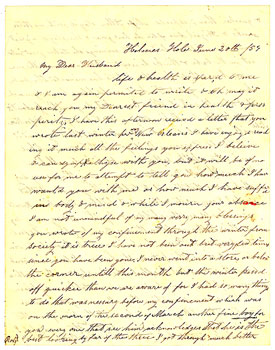 Holmes Hole June 20th /59
My Dear Husband
Life & health is spared to me
& I am again permitted to write & Oh may it
reach you my dearest friend in health & pros
perity, I have this afternoon received a letter that you
wrote last winter New Orleans I have enjoyed read
ing it much all the feelings you express I believe
I can with you, but it will be of no
use for me to attempt to tell you how much I have
wanted you with me or how much I have suffer
in body & mind & while I mourn your absence
I am not unmindful of my many very many blessings
you wrote of my confinement through the winter from
society it is true I have not been out but very few times
since you have been gone, I never went into a store, or below
the corner until this month but this winter passed
off quicker than we are aware of for I had so many things
to do that was necessary before my confinement which was
on the morn of the second of March another fine boy for
you every one that sees him acknowledges that he is the
best looking by far of the three I got through much better